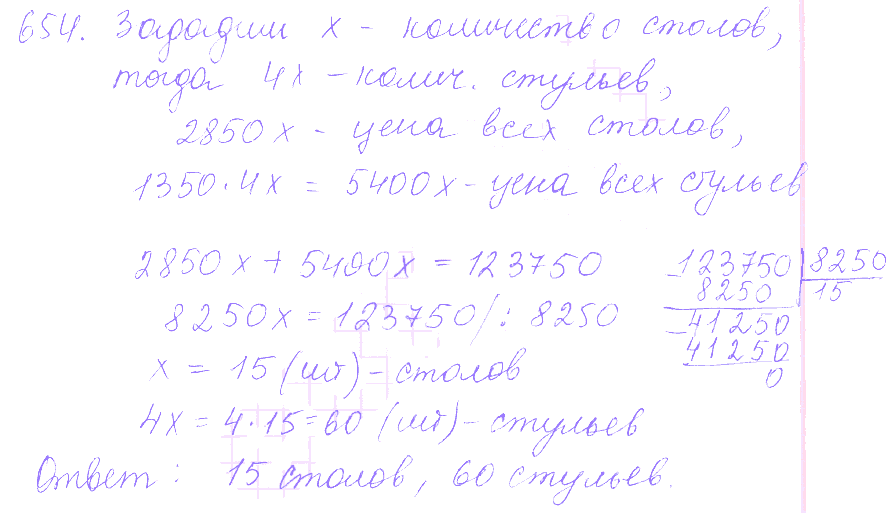 654. Зададим x - количество столов,
тогда 4x - колич. стульев,
2850x - цена всех столов,
1350·4x = 5400x - цена всех стульев
2850x + 5400x = 123750
8250x = 123750/: 8250
x = 15 (шт) - столов
4x = 4·15=60 (шт) - стульев
Ответ: 15 столов, 60 стульев.
123750 | 8250
8250 15
41250
41250
0